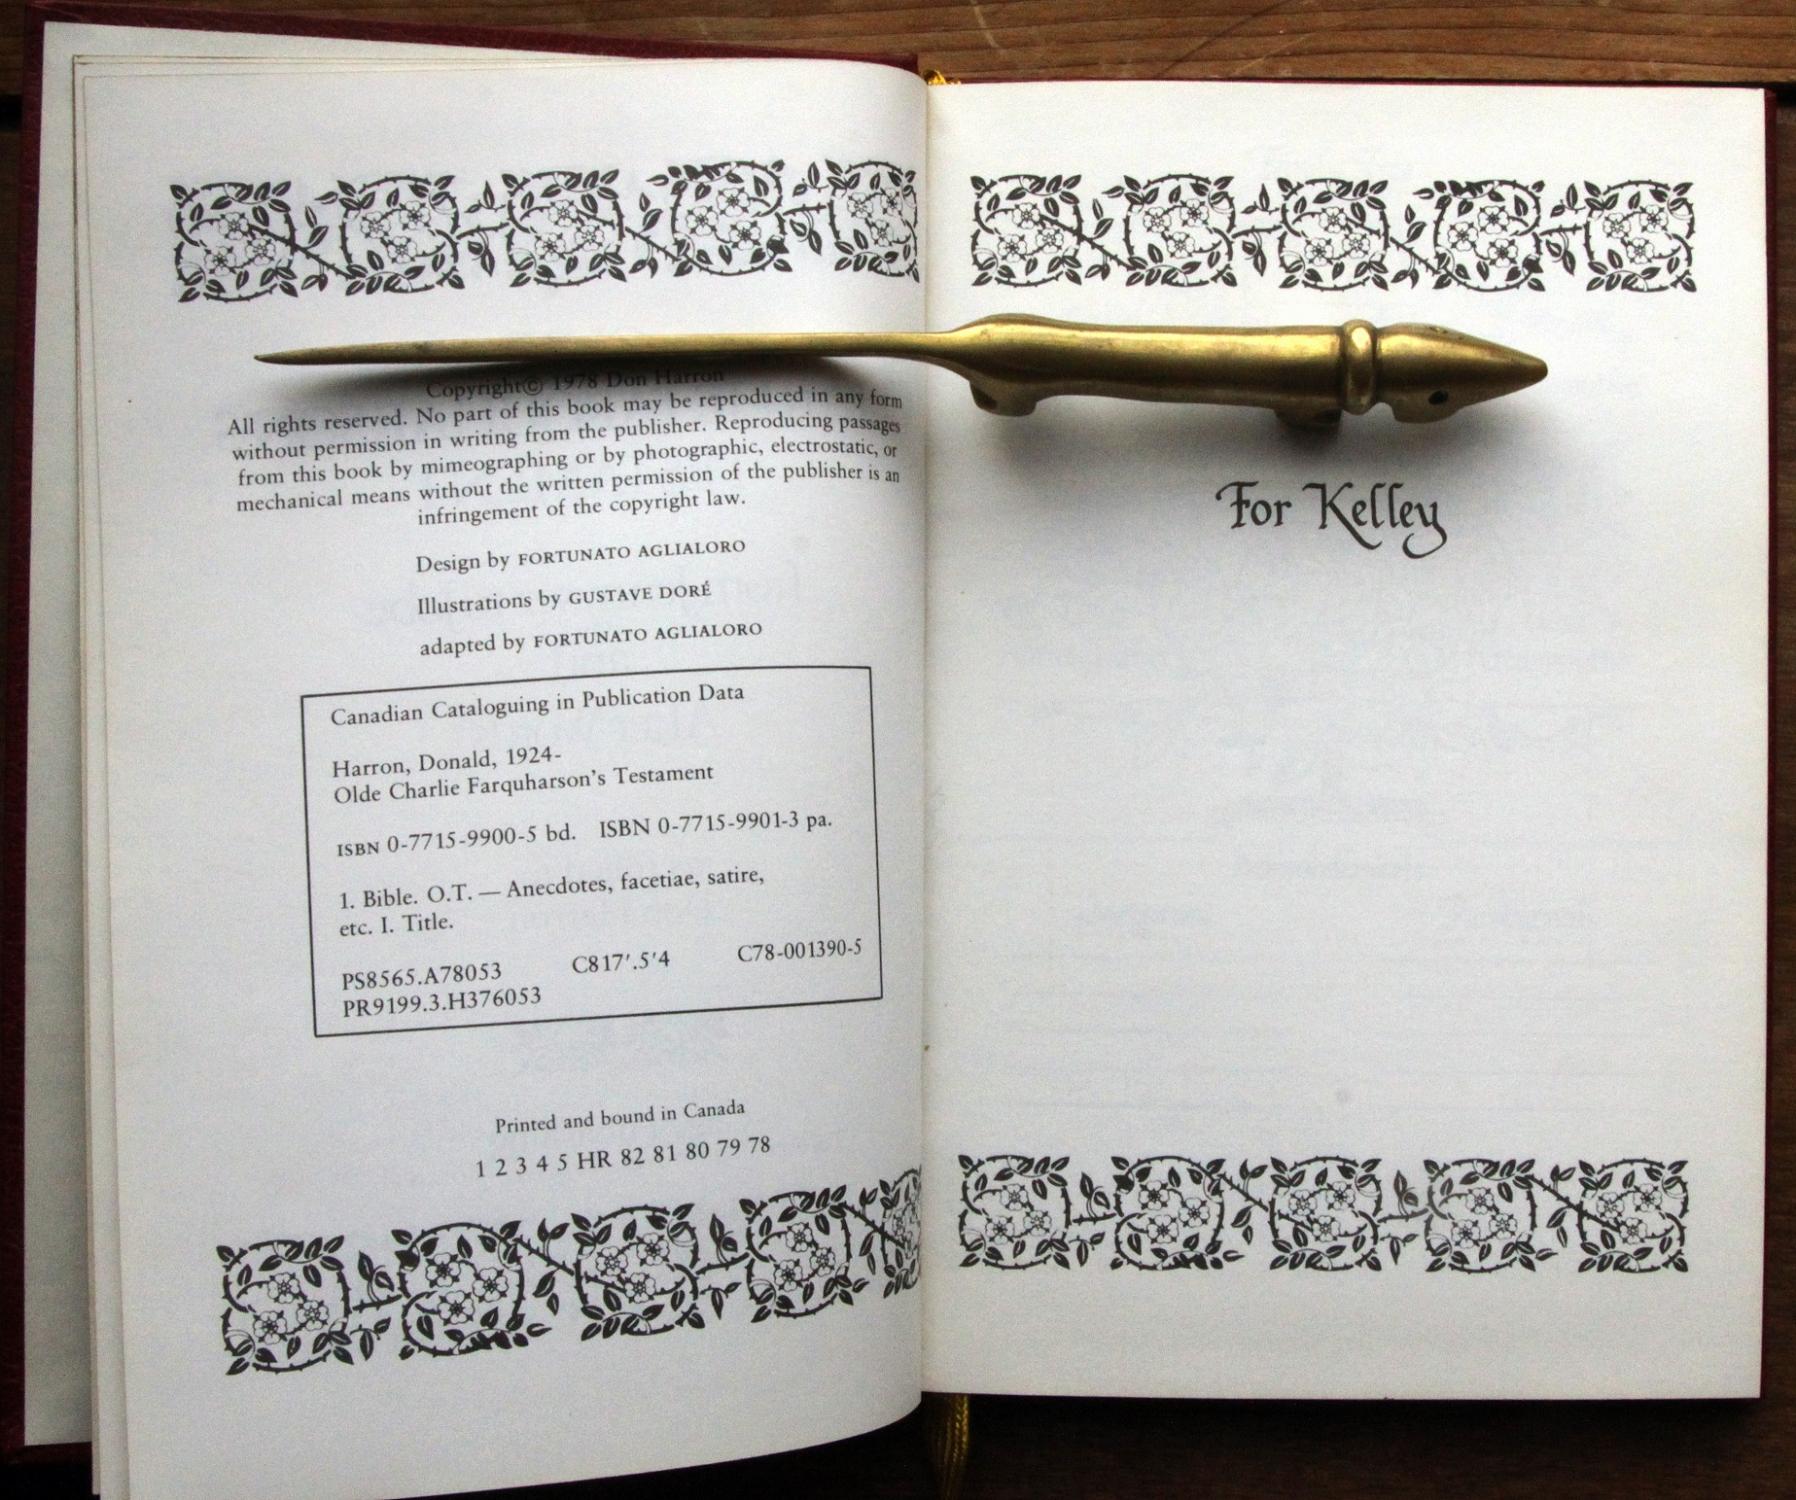 Copyright© 1978 Don Harron
All rights reserved. No part of this book may be reproduced in any form
without permission in writing from the publisher. Reproducing passages
from this book by mimeographing or by photographic, electrostatic, or
mechanical means without the written permission of the publisher is an
infringement of the copyright law.
Design by FORTUNATO AGLIALORO
Illustrations by GUSTAVE DORÉ
adapted by FORTUNATO AGLIALORO
Canadian Cataloguing in Publication Data
Harron, Donald, 1924-
Olde Charlie Farquharson's Testament
ISBN 0-7715-9900-5 bd. ISBN 0-7715-9901-3 pa.
1. Bible. O.T. — Anecdotes, facetiae, satire,
etc. I. Title.
PS8565.A78053 C817'.5'4 C78-001390-5
PR9199.3.H376053
Printed and bound in Canada
1 2 3 4 5 HR 82 81 80 79 78
For Kelley